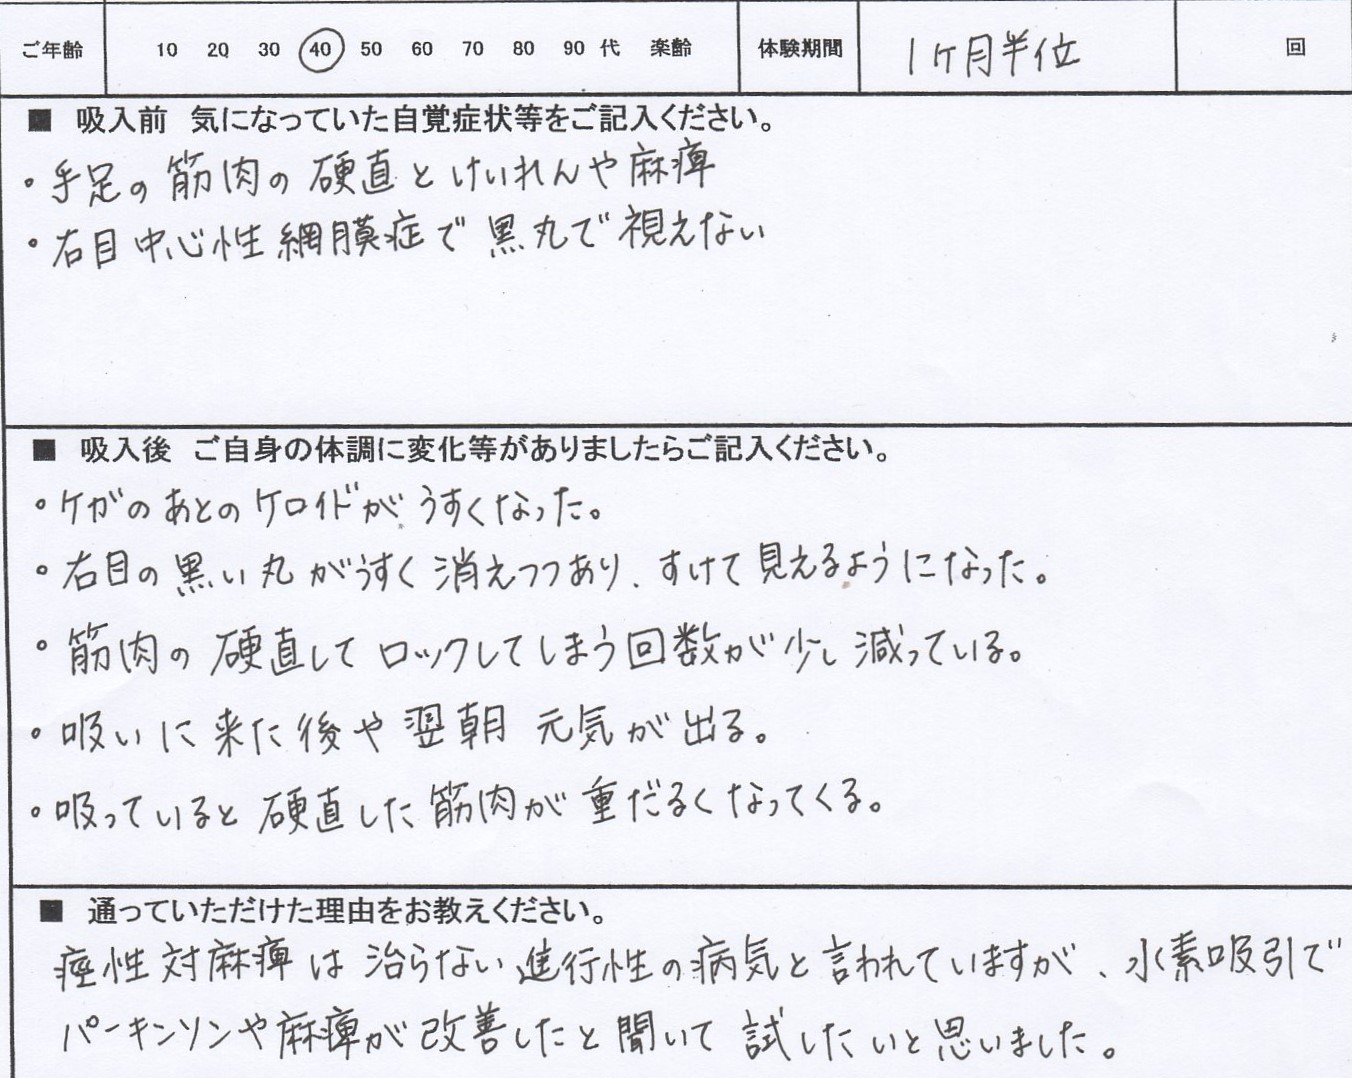 ご年齢 10 20 30 40 50 60 70 80 90 代 楽齢 体験期間 1ヶ月半位 回
■ 吸入前 気になっていた自覚症状等をご記入ください。
・手足の筋肉の硬直とけいれんや麻痺
・右目中心性網膜症で黒丸で視えない
■ 吸入後 ご自身の体調に変化等がありましたらご記入ください。
・ケガのあとのケロイドがうすくなった。
・右目の黒い丸がうすく消えつつあり、すけて見えるようになった。
・筋肉の硬直してロックしてしまう回数が少し減っている。
・吸いに来た後や翌朝 元気が出る。
・吸っていると硬直した筋肉が重だるくなってくる。
■ 通っていただけた理由をお教えください。
痙性対麻痺は治らない進行性の病気と言われていますが、水素吸引で
パーキンソンや麻痺が改善したと聞いて試したいと思いました。